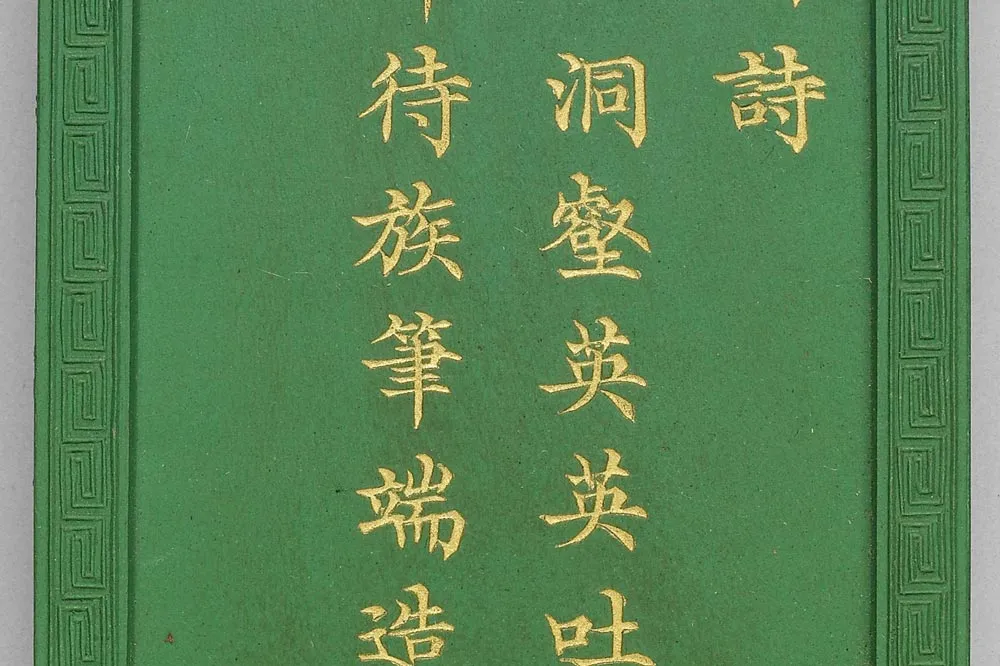 詩
洞壑英英吐
待族筆端造